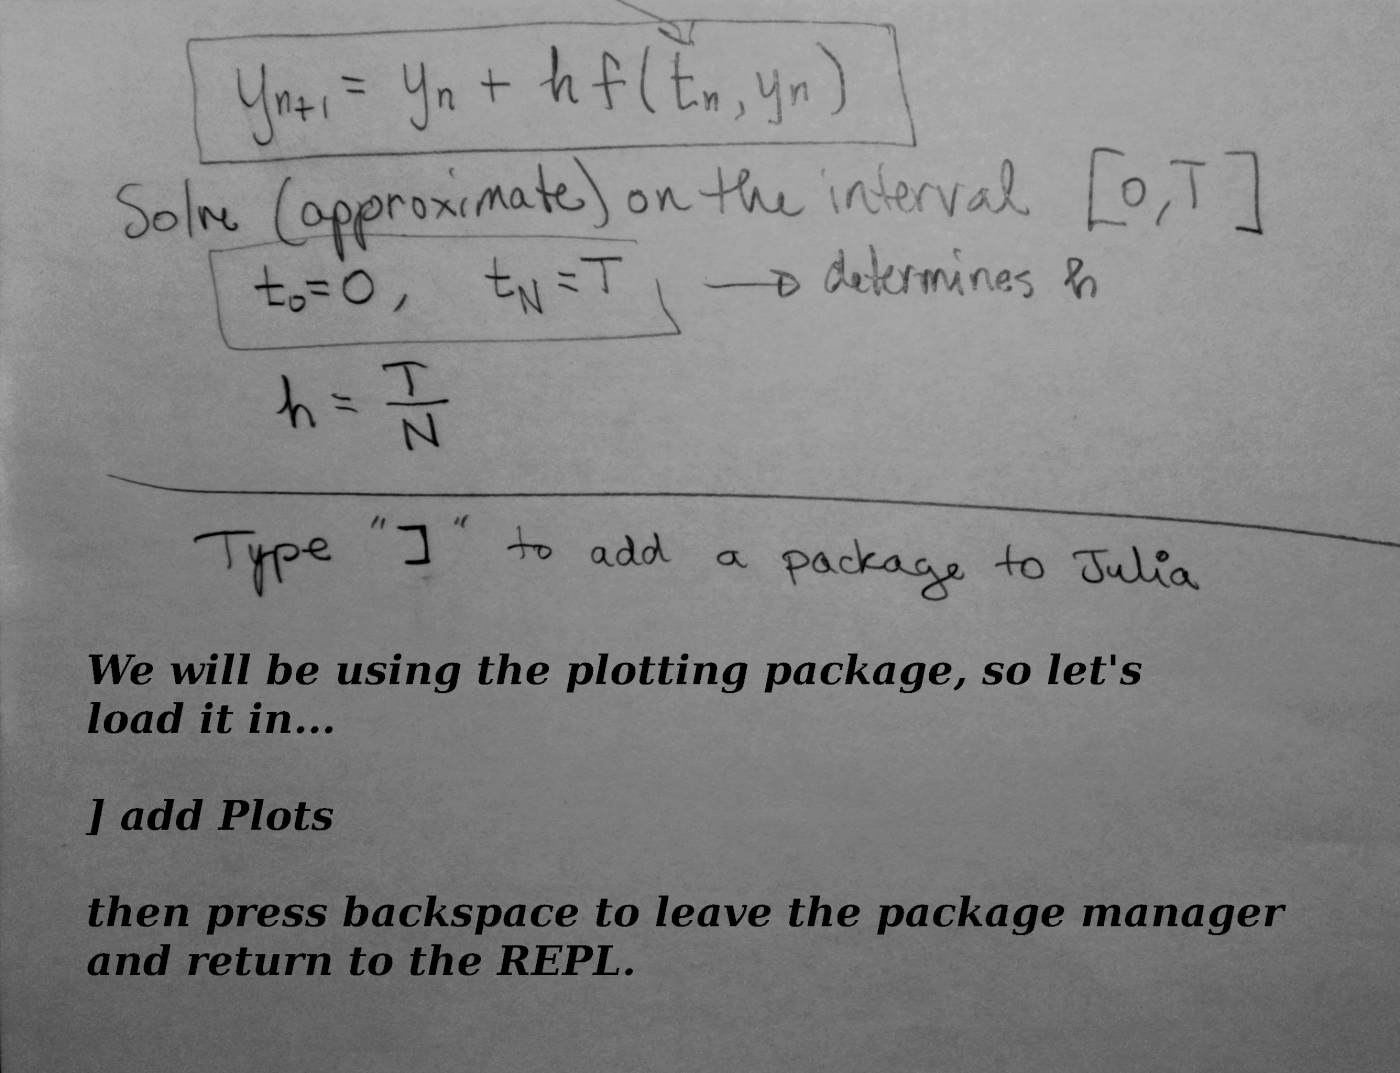 yₙ₊₁ = yₙ + h f(tₙ, yₙ)
Solve (approximate) on the interval [0,T]
t₀=0, t_N=T → determines h
h = T/N
Type "]" to add a package to Julia
We will be using the plotting package, so let's
load it in...
] add Plots
then press backspace to leave the package manager
and return to the REPL.